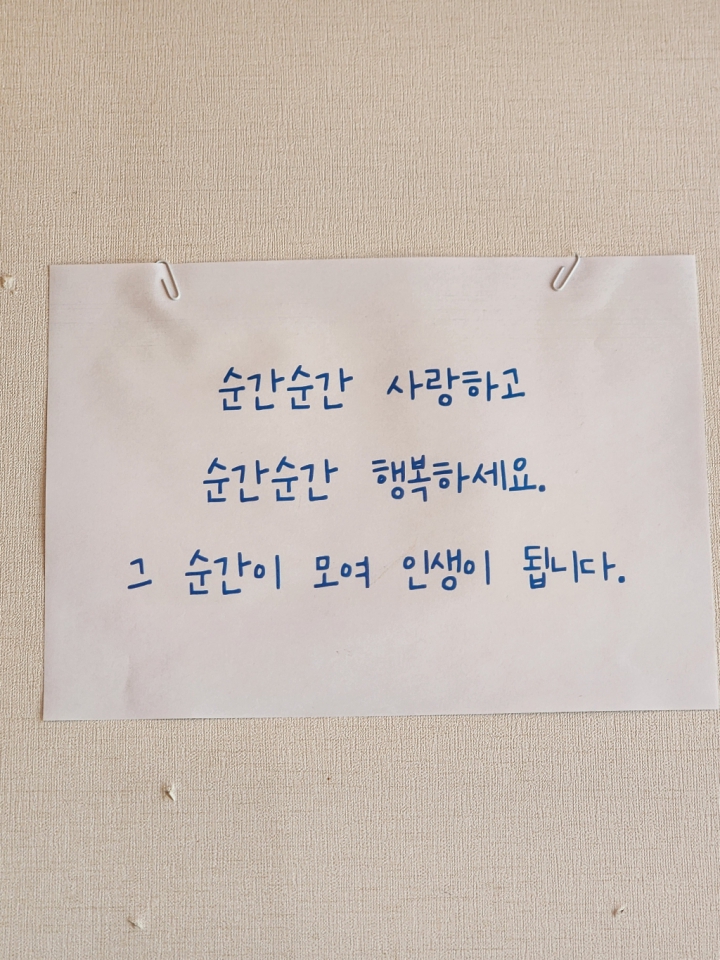 순간순간 사랑하고
순간순간 행복하세요.
그 순간이 모여 인생이 됩니다.